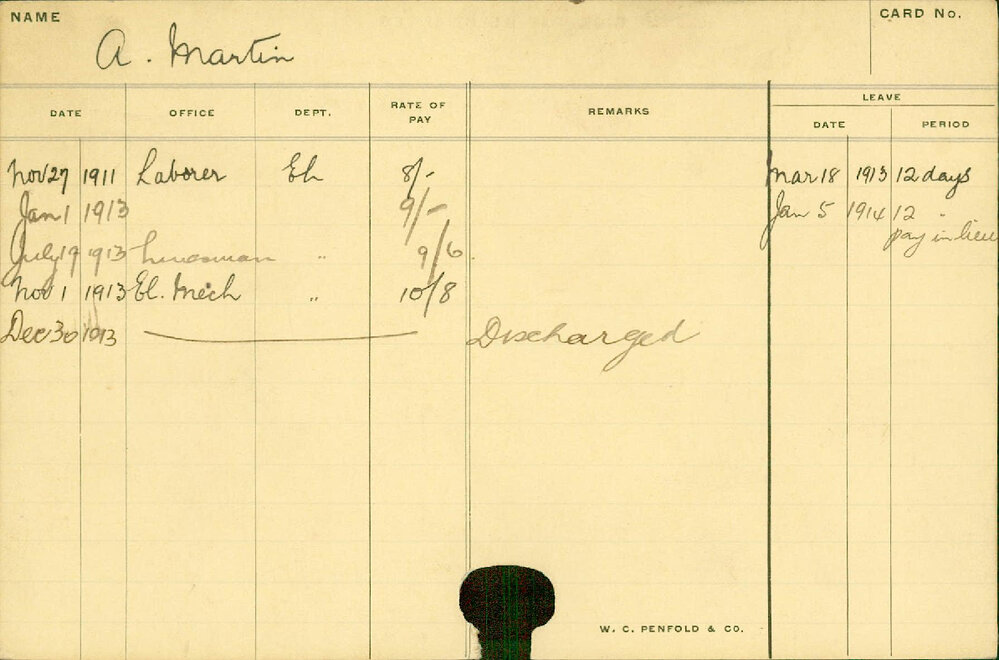 NAME
A. Martin
CARD No.
DATE OFFICE DEPT. RATE OF PAY REMARKS LEAVE
DATE PERIOD
Nov 27 1911 Laborer El 8/- Mar 18 1913 12 days
Jan 1 1913 9/- Jan 5 1914 12 "
pay in lieu
July 19 1913 Linesman " 9/6
Nov 1 1913 El. Mech " 10/8
Dec 30 1913 Discharged
W. C. PENFOLD & CO.